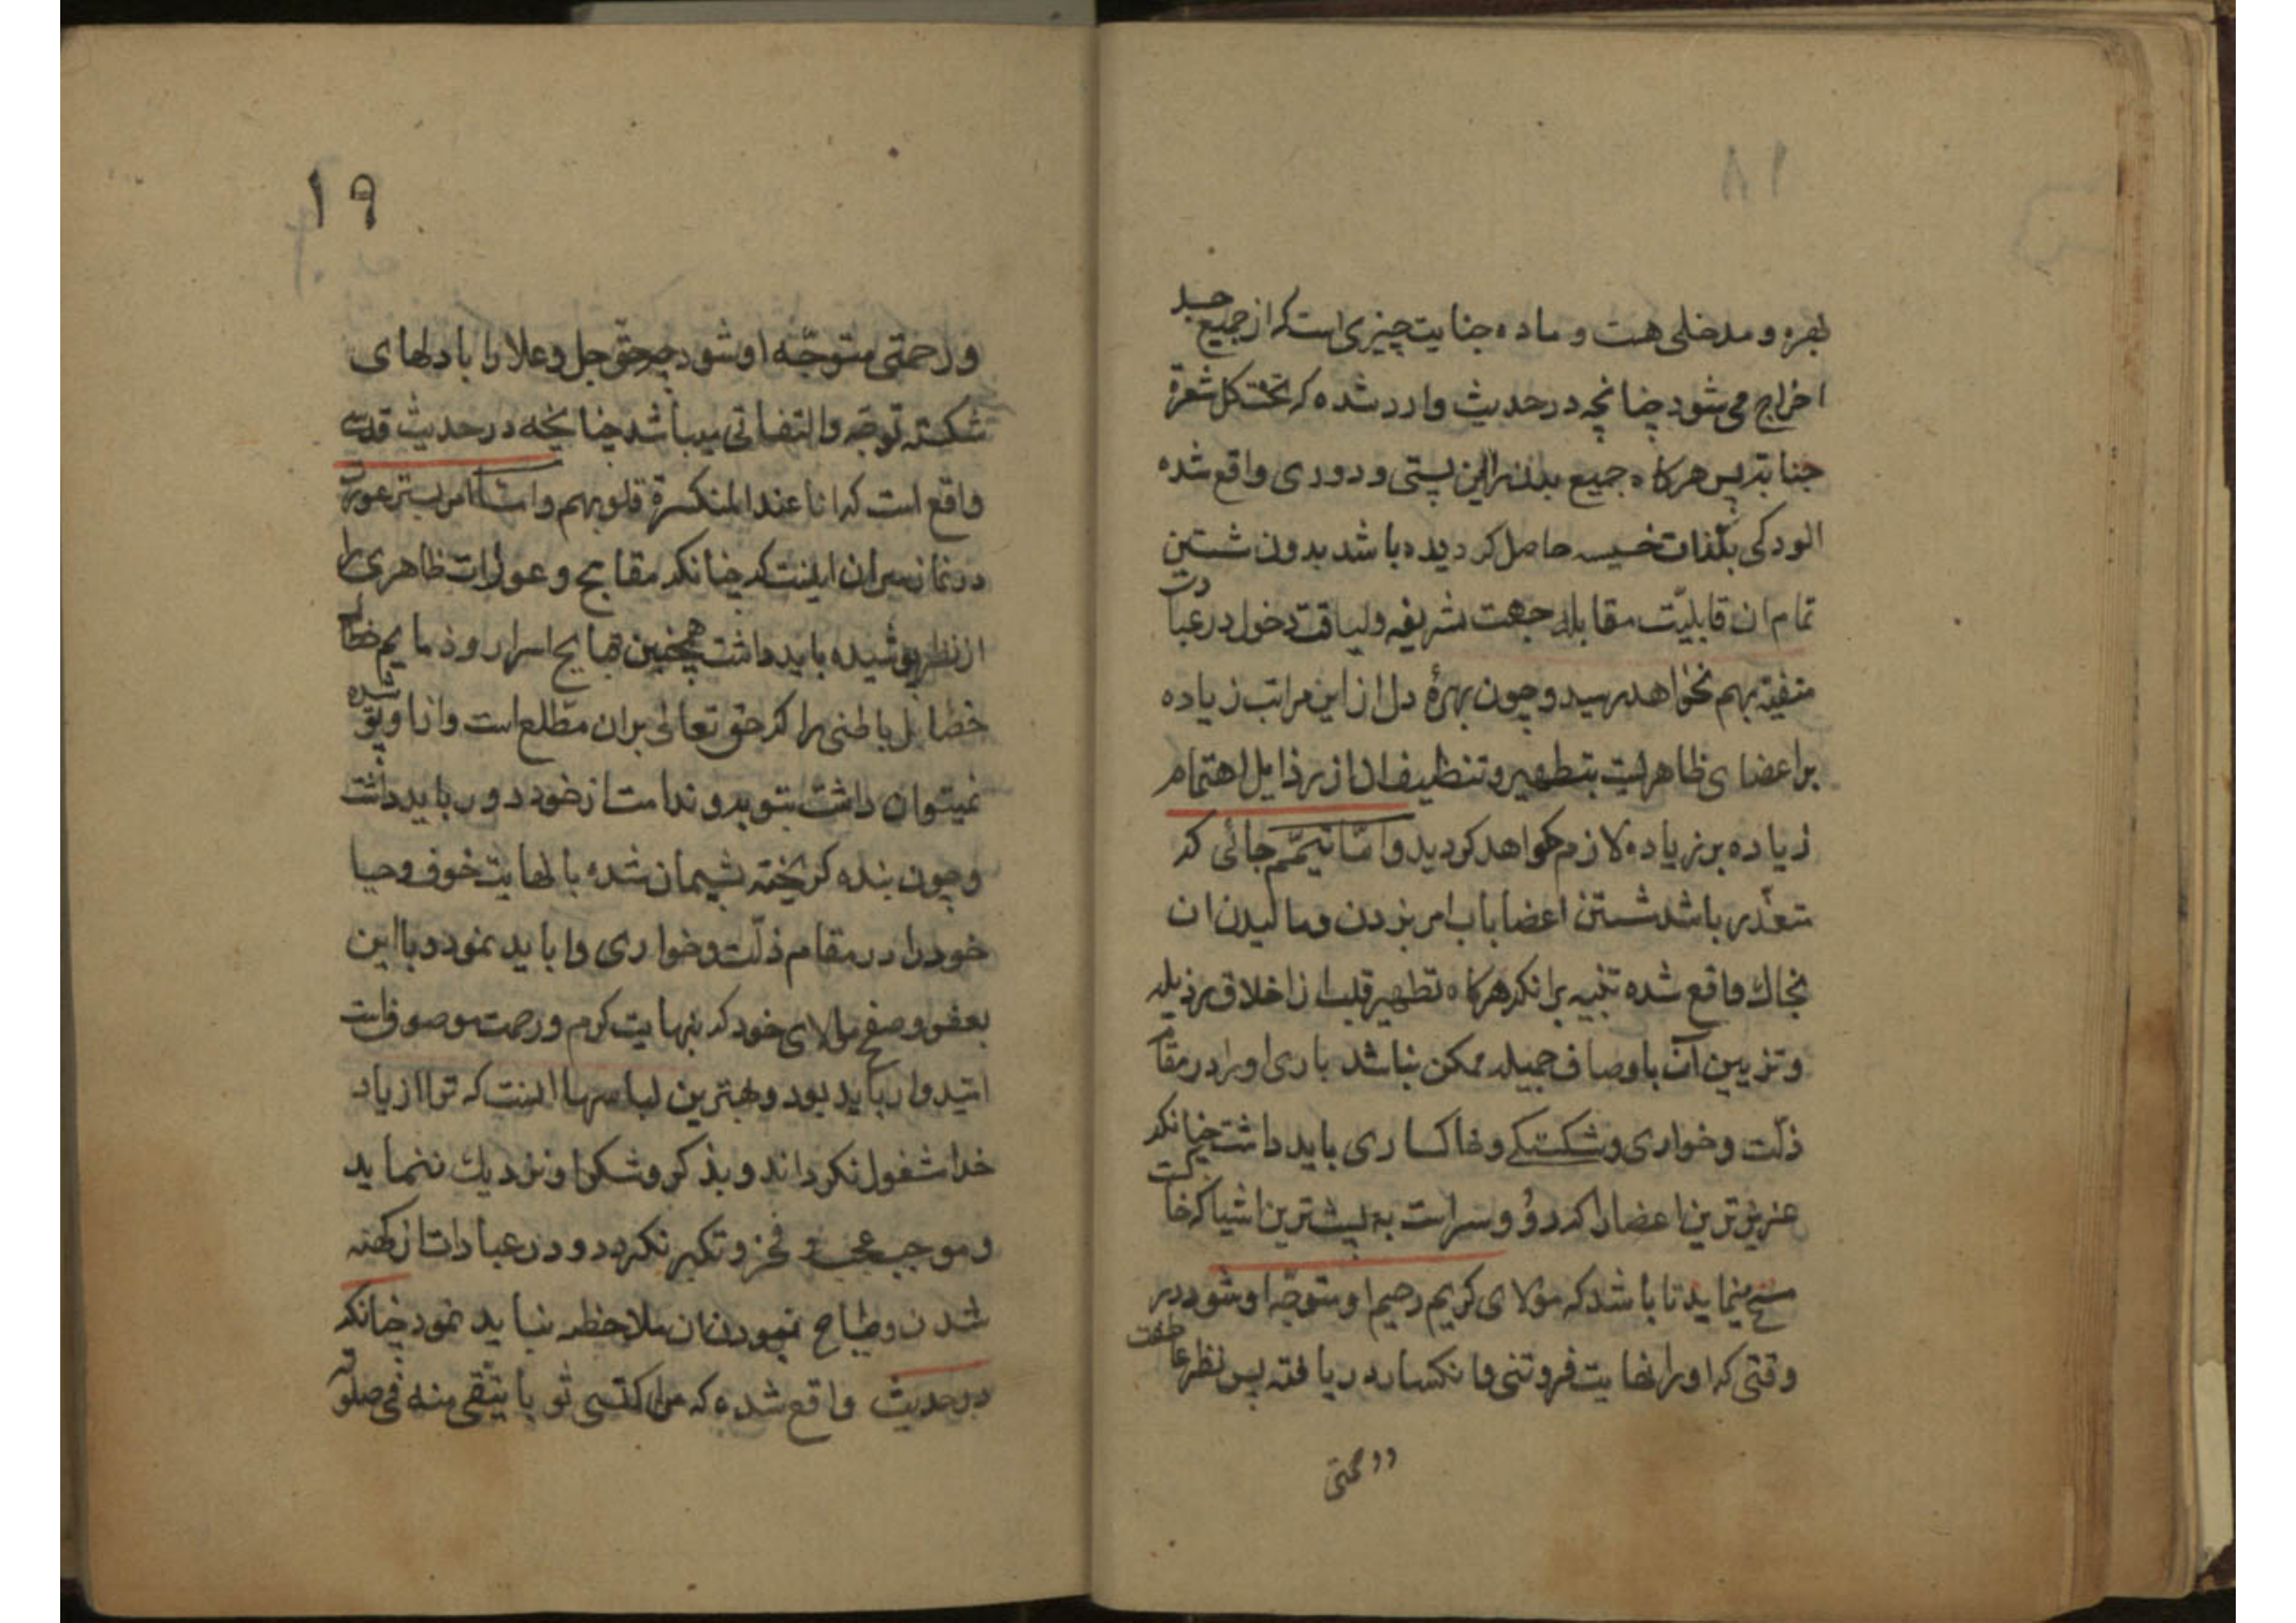 ۱۸
بهره و مدخلی هست و ماده جنایت چیزی است که از جمیع جسد
اخراج می شود چنانچه در حدیث وارد شده که تحت کل شعرة
جنابة پس هرگاه جمیع بدن را این پستی و دوری واقع شده
الودکی بلذات خسیسه حاصل کردیده باشد بدون شستن
تمام ان قابلیّت مقابله جهت شریفه و لیاقت دخول در عبادت
منیفه بهم نخواهد رسید و چون بهرهٔ دل از این مراتب زیاده
بر اعضای ظاهر است بتطهیر و تنظیف ان از رذایل اهتمام
زیاده بر زیاده لازم خواهد کردید و امّا تیمّم جائی که
متعذّر باشد شستن اعضا باب امر بزدن و مالیدن ان
بخاک واقع شده تنبیه بر انکه هرکاه تطهیر قلب از اخلاق رذیله
و تزیین آن باوصاف جمیله ممکن نباشد باری او را در مقام
ذلّت و خواری و شکستکی و خاکساری باید داشت چنانکه
عزیزترین اعضا را که رو و سر است به پست ترین اشیا که خاکست
مسح مینماید تا باشد که مولای کریم رحیم او متوجّه او شود در
وقتی که او را بغایت فروتنی و انکسار دریافته پس نظر عاطفت
و رحمتی
۱۹
و رحمتی متوجّه او شود چه حقّ جل و علا را با دلهای
شکسته توجّه و التفاتی میباشد چنانچه در حدیث قدسی
واقع است که انا عند المنکسرة قلوبهم و امّا امر بستر عورت
در نماز سر ان اینست که چنانکه مقابح و عورات ظاهری را
از نظر پوشیده باید داشت همچنین قبایح اسرار و ذمایم
خصایل باطنی را که حق تعالی بران مطّلع است و از او پوشیده
نمیتوان داشت بتوبه و ندامت از خود دور باید داشت
و چون بنده کریخته پشیمان شده با نهایت خوف و حیا
خود را در مقام ذلّت و خواری وا باید نمود و با این
بعفو و صفح مولای خود که بنهایت کرم و رحمت موصوف است
امیدوار باید بود و بهترین لباسها انست که ترا از یاد
خدا مشغول نکرداند و بذکر و شکر او نزدیک ننماید
و موجب عجب و فخر و تکبر نکردد و در عبادات از کهنه
شدن و ضایع نمودن ان ملاحظه نباید نمود چنانکه
در حدیث واقع شده که من اکتسی ثوبا یتّقی منه فی صلوته